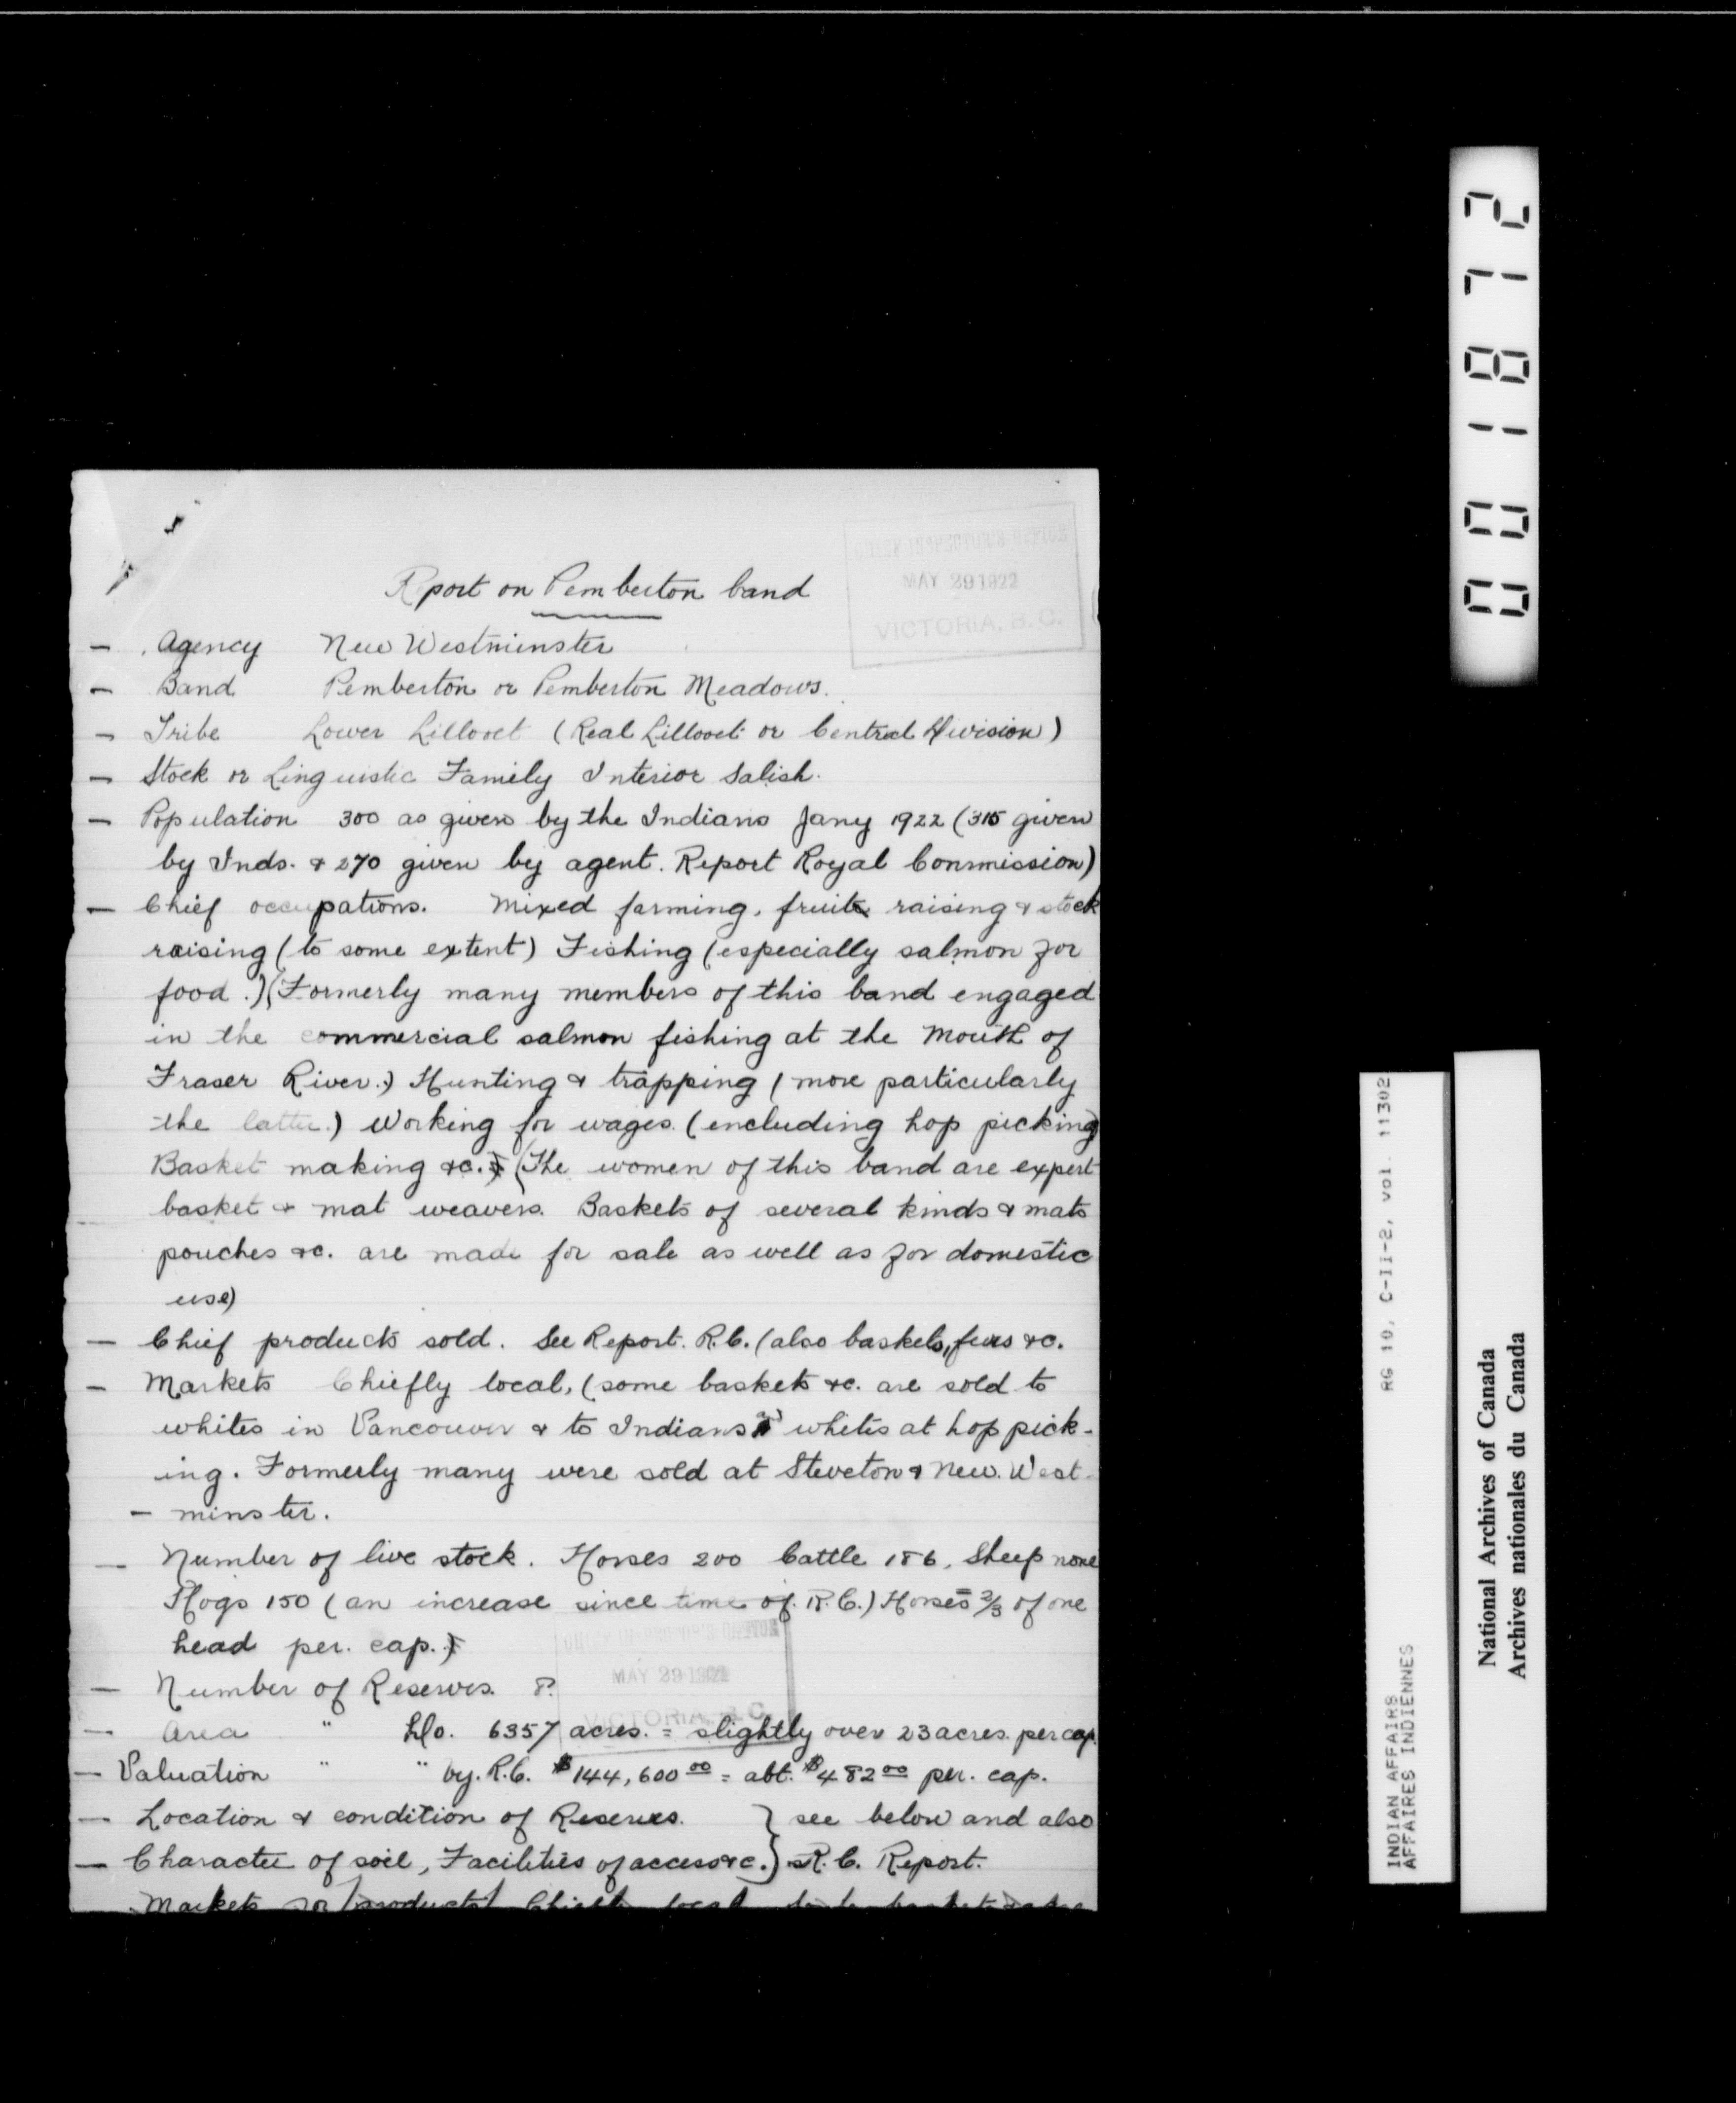 Report on Pemberton band
MAY 29 1922
VICTORIA, B.C.
— Agency New Westminster
— Band Pemberton or Pemberton Meadows.
— Tribe Lower Lillooet (Real Lillooet or Central Division)
— Stock or Linguistic Family Interior Salish.
— Population 300 as given by the Indians Jany 1922 (315 given
by Inds. & 270 given by agent. Report Royal Commission)
— Chief occupations. Mixed farming, fruit raising & stock
raising (to some extent) Fishing (especially salmon for
food.) (Formerly many members of this band engaged
in the commercial salmon fishing at the mouth of
Fraser River.) Hunting & trapping (more particularly
the latter.) Working for wages. (including hop picking)
Basket making &c. (The women of this band are expert
basket & mat weavers. Baskets of several kinds & mats
pouches &c. are made for sale as well as for domestic
use)
— Chief products sold. See Report. R.C. (also baskets, furs &c.
— Markets Chiefly local, (some baskets &c. are sold to
whites in Vancouver & to Indians & whites at hop pick-
ing. Formerly many were sold at Steveton & New. West-
- minster.
— Number of live stock. Horses 200 Cattle 186, Sheep none
Hogs 150 (an increase since time of R.C.) Horses = 2/3 of one
head per. cap.)
— Number of Reserves. 8.
MAY 29 1922
VICTORIA, B.C.
— Area " Do. 6357 acres. = slightly over 23 acres. per cap.
— Valuation " " by. R.C. $144,600 00 = abt. $482 00 per. cap.
— Location & condition of Reserves. } see below and also
— Character of soil, Facilities of access &c. } R.C. Report.
Markets for products Chiefly local
0 0 1 8 7 2
RG 10, C-II-2, vol. 11302
INDIAN AFFAIRS
AFFAIRES INDIENNES
National Archives of Canada
Archives nationales du Canada